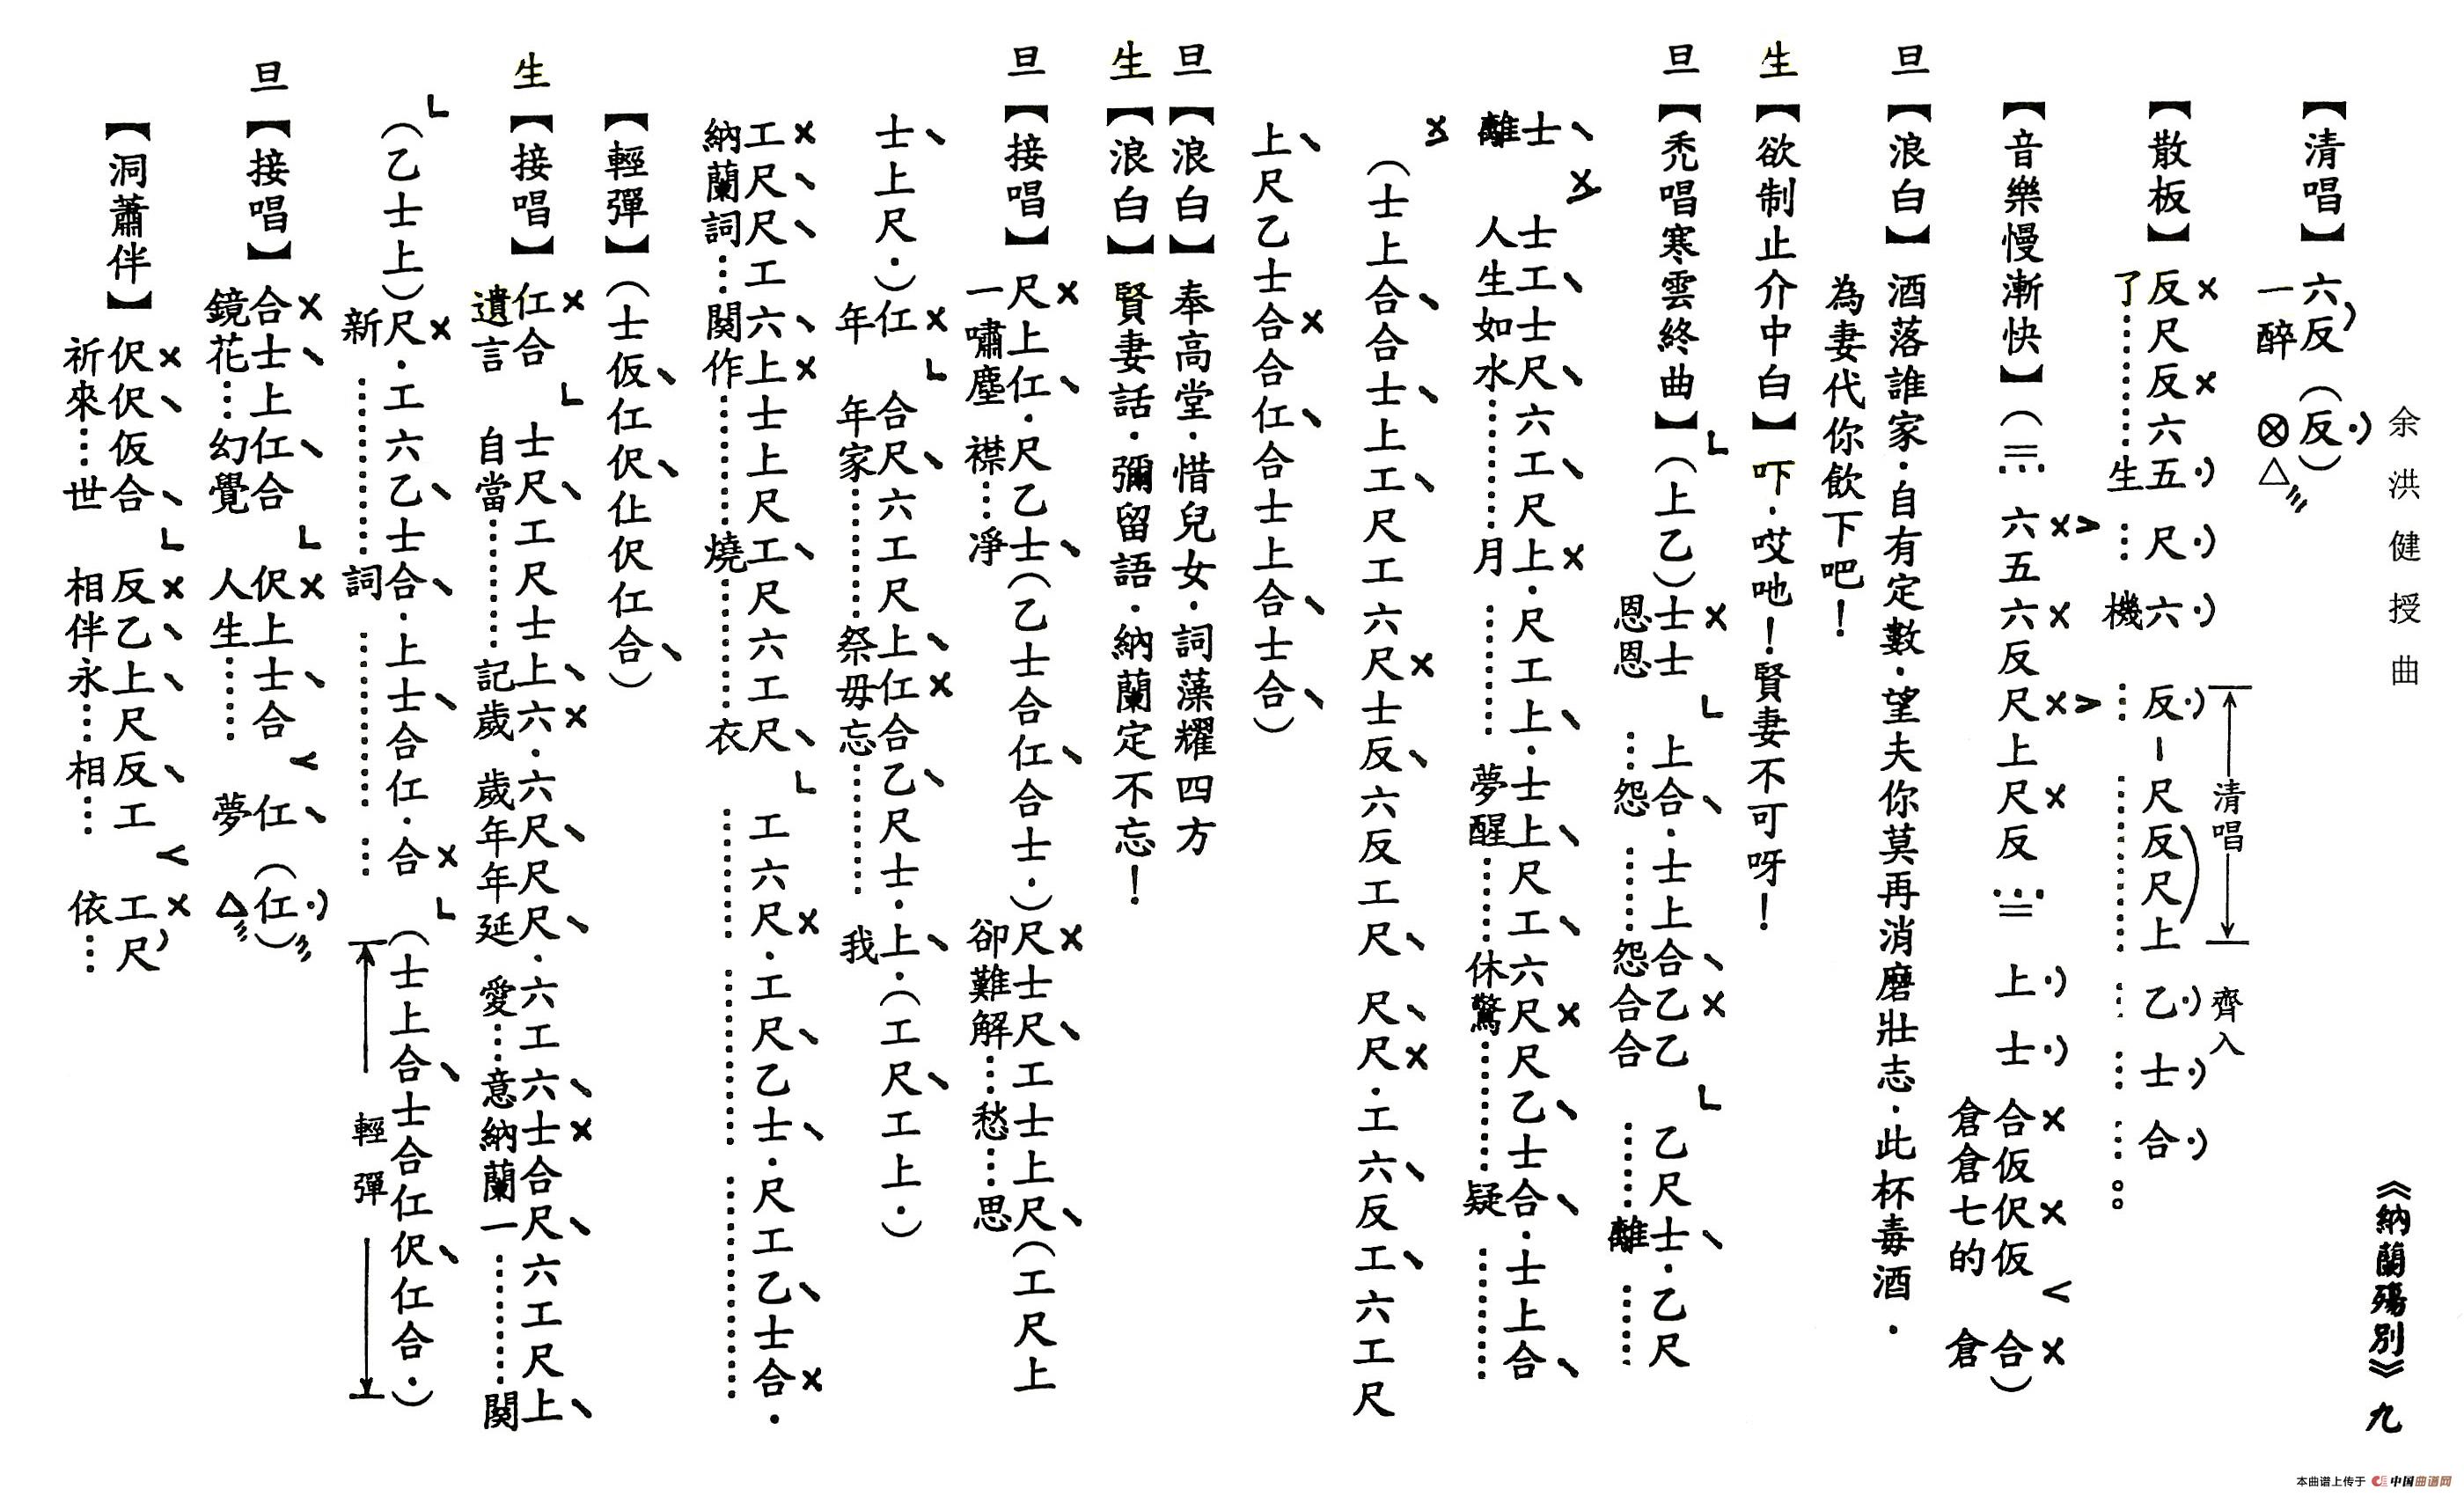 余洪健授曲 《納蘭殤別》九
【清唱】六反(反)
一醉⊗△
清唱 齊入
【散板】反尺反六五 尺 六 反-尺反尺上 乙 士 合
了……生…機…………。。
【音樂慢漸快】(六五六反尺上尺反 上 士 合仮伬仮 合)
倉倉七的 倉
旦【浪白】酒落誰家.自有定數.望夫你莫再消磨壯志.此杯毒酒.
為妻代你飲下吧!
生【欲制止介中白】吓.哎吔!賢妻不可呀!
旦【禿唱寒雲終曲】(上乙)士士 上合.士上合乙乙 乙尺士.乙尺
恩恩…怨……怨合合……離……
士 士工士尺六工尺上.尺工上.士上尺工六尺尺乙士合.士上合
離 人生如水……月……夢醒……休驚……疑……
(士上合合士上工尺工六尺士反六反工尺 尺尺.工六反工六工尺
上尺乙士合合仜合士上合士合)
旦【浪白】奉高堂.惜兒女.詞藻耀四方
生【浪白】賢妻話.彌留語.納蘭定不忘!
旦【接唱】尺上仜.尺乙士(乙士合仜合士.)尺士尺工士上尺(工尺上
一嘯塵 襟…淨 卻難解…愁…思
士上尺.)仜 合尺六工尺上仜合乙尺士.上.(工尺工上.)
年 年家……祭毋忘……我
工尺尺工六上士上尺工尺六工尺 工六尺.工尺乙士.尺工乙士合.
納蘭詞…関作……燒……衣……
【輕彈】(士仮仜伬仩伬仜合)
生【接唱】仜合 士尺工尺士上六.六尺尺尺.六工六士合尺六工尺上
遺言 自當……記歲 歲年年延 愛…意納蘭一……関
(乙士上)尺.工六乙士合.上士合仜.合 (士上合士合仜伬仜合.)
新……詞……
輕彈
旦【接唱】合士上仜合 伬上士合 仜(仜)
鏡花…幻覺 人生……夢 △
【洞蕭伴】伬伬仮合 反乙上尺反工 工尺
祈來…世 相伴永…相… 依…
本曲谱上传于 中国曲谱网